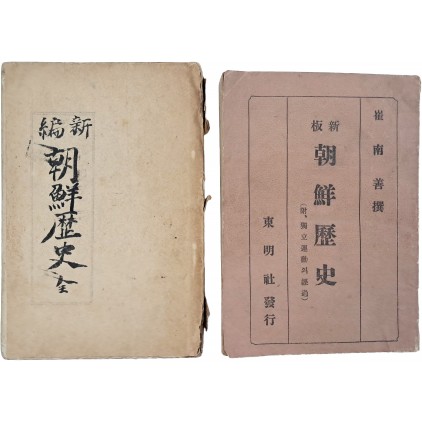 新編
朝鮮歷史 全
崔南善撰
新板
朝鮮歷史
(附、獨立運動의經過)
東明社發行